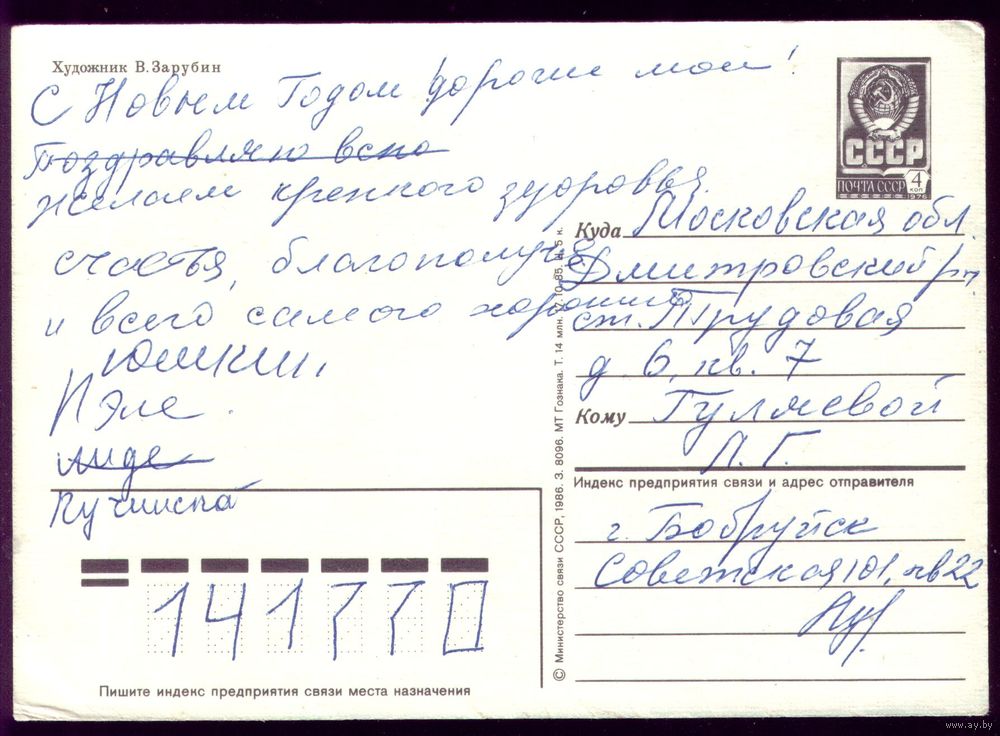 Художник В. Зарубин
С Новым Годом дорогие мои!
Поздравляю вспо
желаем крепкого здоровья.
счастья, благополучия
и всего самого хорошие
Юшкин,
Пэле.
лиде
Кучинска
141770
Пишите индекс предприятия связи места назначения
© Министерство связи СССР, 1986. З. 8096. МТ Гознака. Т. 14 млн.
СССР
ПОЧТА СССР
4
КОП
Куда Московская обл.
Дмитровский р-н
ст. Трудовая
д. 6, кв. 7
Кому Гуляевой
Л. Г.
Индекс предприятия связи и адрес отправителя
г. Бобруйск
Советская 101, кв 22
www.ay.by